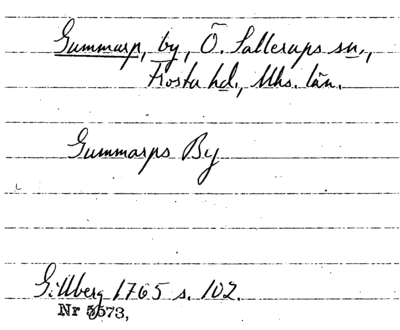 Gummarp, by, Ö. Sallerups sn.,
Frosta hd., Mhs. län.
Gummarps By
Gillberg 1765 s. 102.
Nr 5573,